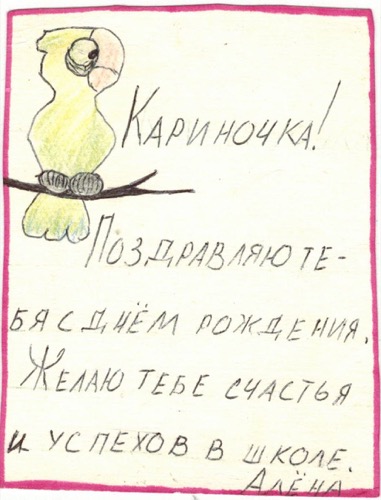 Кариночка!
Поздравляю те-
бя с днём рождения.
Желаю тебе счастья
и успехов в школе.
Алёна